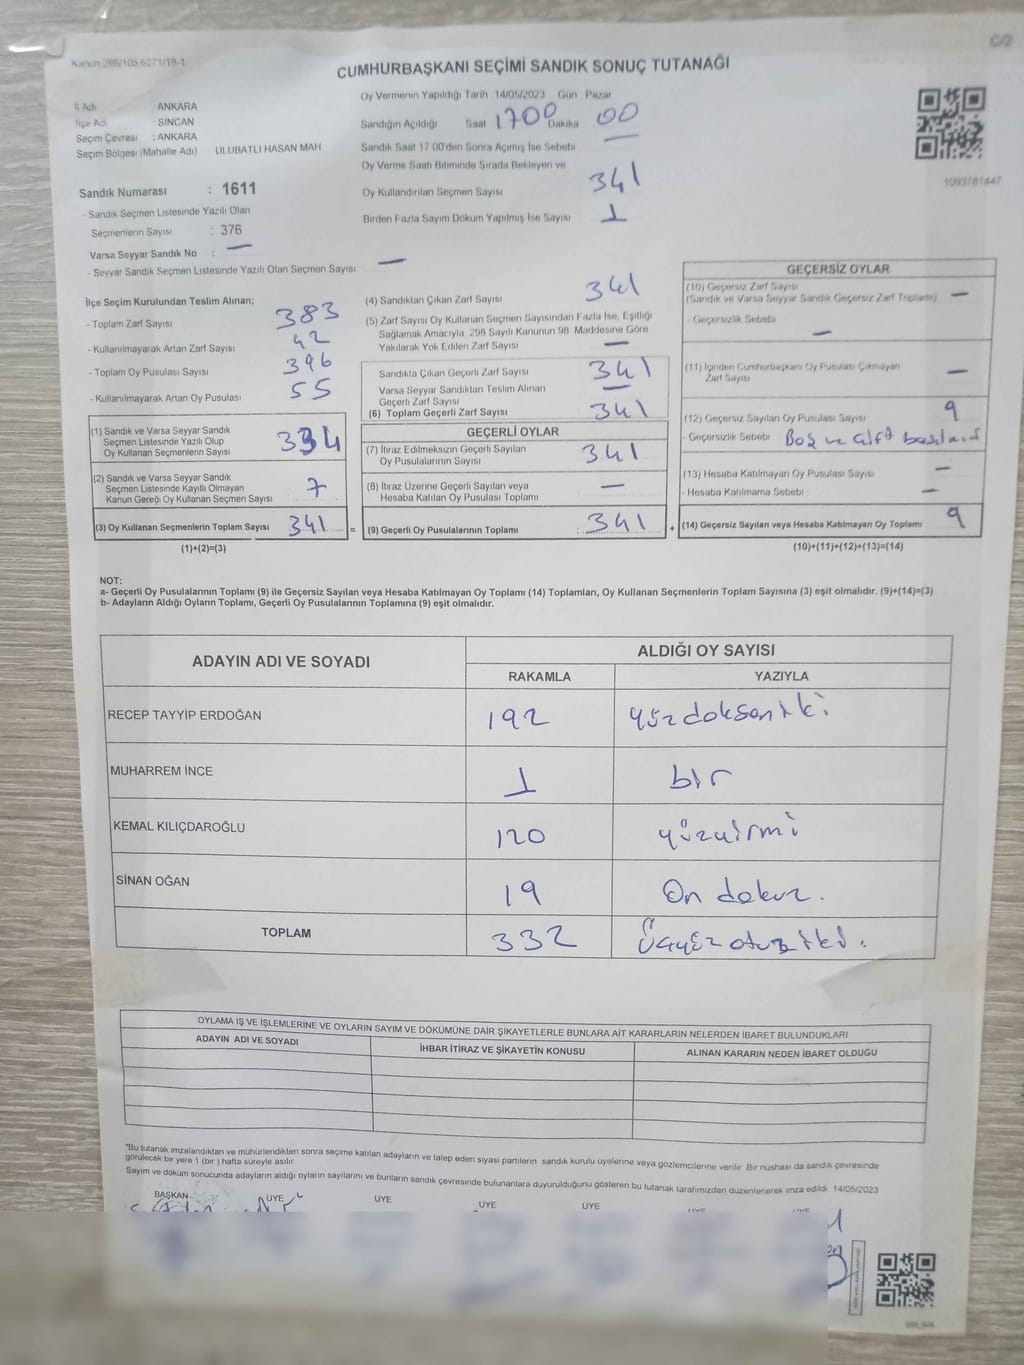 C/2
Kanun 298/105 6271/18-1
CUMHURBAŞKANI SEÇİMİ SANDIK SONUÇ TUTANAĞI
İl Adı ANKARA
İlçe Adı SİNCAN
Seçim Çevresi : ANKARA
Seçim Bölgesi (Mahalle Adı) ULUBATLI HASAN MAH
Sandık Numarası : 1611
- Sandık Seçmen Listesinde Yazılı Olan
Seçmenlerin Sayısı : 376
Varsa Seyyar Sandık No : —
- Seyyar Sandık Seçmen Listesinde Yazılı Olan Seçmen Sayısı —
Oy Vermenin Yapıldığı Tarih 14/05/2023 Gün Pazar
Sandığın Açıldığı Saat 1700 Dakika 00
Sandık Saat 17:00'den Sonra Açılmış İse Sebebi —
Oy Verme Saati Bitiminde Sırada Bekleyen ve
Oy Kullandırılan Seçmen Sayısı 341
Birden Fazla Sayım Döküm Yapılmış İse Sayısı 1
1093781447
İlçe Seçim Kurulundan Teslim Alınan;
- Toplam Zarf Sayısı 383
- Kullanılmayarak Artan Zarf Sayısı 42
- Toplam Oy Pusulası Sayısı 396
- Kullanılmayarak Artan Oy Pusulası 55
(1) Sandık ve Varsa Seyyar Sandık
Seçmen Listesinde Yazılı Olup
Oy Kullanan Seçmenlerin Sayısı 334
(2) Sandık ve Varsa Seyyar Sandık
Seçmen Listesinde Kayıtlı Olmayan
Kanun Gereği Oy Kullanan Seçmen Sayısı 7
(3) Oy Kullanan Seçmenlerin Toplam Sayısı 341 =
(1)+(2)=(3)
(4) Sandıktan Çıkan Zarf Sayısı 341
(5) Zarf Sayısı Oy Kullanan Seçmen Sayısından Fazla İse, Eşitliği
Sağlamak Amacıyla, 298 Sayılı Kanunun 98. Maddesine Göre
Yakılarak Yok Edilen Zarf Sayısı —
Sandıkta Çıkan Geçerli Zarf Sayısı 341
Varsa Seyyar Sandıktan Teslim Alınan
Geçerli Zarf Sayısı —
(6) Toplam Geçerli Zarf Sayısı 341
GEÇERLİ OYLAR
(7) İtiraz Edilmeksizin Geçerli Sayılan
Oy Pusulalarının Sayısı 341
(8) İtiraz Üzerine Geçerli Sayılan veya
Hesaba Katılan Oy Pusulası Toplamı —
(9) Geçerli Oy Pusulalarının Toplamı 341 +
GEÇERSİZ OYLAR
(10) Geçersiz Zarf Sayısı
(Sandık ve Varsa Seyyar Sandık Geçersiz Zarf Toplamı) —
- Geçersizlik Sebebi —
(11) İçinden Cumhurbaşkanı Oy Pusulası Çıkmayan
Zarf Sayısı —
(12) Geçersiz Sayılan Oy Pusulası Sayısı 9
- Geçersizlik Sebebi Boş ve çift
(13) Hesaba Katılmayan Oy Pusulası Sayısı —
- Hesaba Katılmama Sebebi —
(14) Geçersiz Sayılan veya Hesaba Katılmayan Oy Toplamı 9
(10)+(11)+(12)+(13)=(14)
NOT:
a- Geçerli Oy Pusulalarının Toplamı (9) ile Geçersiz Sayılan veya Hesaba Katılmayan Oy Toplamı (14) Toplamları, Oy Kullanan Seçmenlerin Toplam Sayısına (3) eşit olmalıdır. (9)+(14)=(3)
b- Adayların Aldığı Oyların Toplamı, Geçerli Oy Pusulalarının Toplamına (9) eşit olmalıdır.
ADAYIN ADI VE SOYADI ALDIĞI OY SAYISI
RAKAMLA YAZIYLA
RECEP TAYYİP ERDOĞAN 192 yüzdoksaniki
MUHARREM İNCE 1 bir
KEMAL KILIÇDAROĞLU 120 yüzyirmi
SİNAN OĞAN 19 On dokuz.
TOPLAM 332 Üçyüz otuz iki.
OYLAMA İŞ VE İŞLEMLERİNE VE OYLARIN SAYIM VE DÖKÜMÜNE DAİR ŞİKAYETLERLE BUNLARA AİT KARARLARIN NELERDEN İBARET BULUNDUKLARI
ADAYIN ADI VE SOYADI İHBAR İTİRAZ VE ŞİKAYETİN KONUSU ALINAN KARARIN NEDEN İBARET OLDUĞU
"Bu tutanak imzalandıktan ve mühürlendikten sonra seçime katılan adayların ve talep eden siyasi partilerin sandık kurulu üyelerine veya gözlemcilerine verilir. Bir nüshası da sandık çevresinde
görülecek bir yere 1 (bir) hafta süreyle asılır.
Sayım ve döküm sonucunda adayların aldığı oyların sayılarını ve bunların sandık çevresinde bulunanlara duyurulduğunu gösteren bu tutanak tarafımızdan düzenlenerek imza edildi. 14/05/2023
BAŞKAN ÜYE ÜYE ÜYE ÜYE